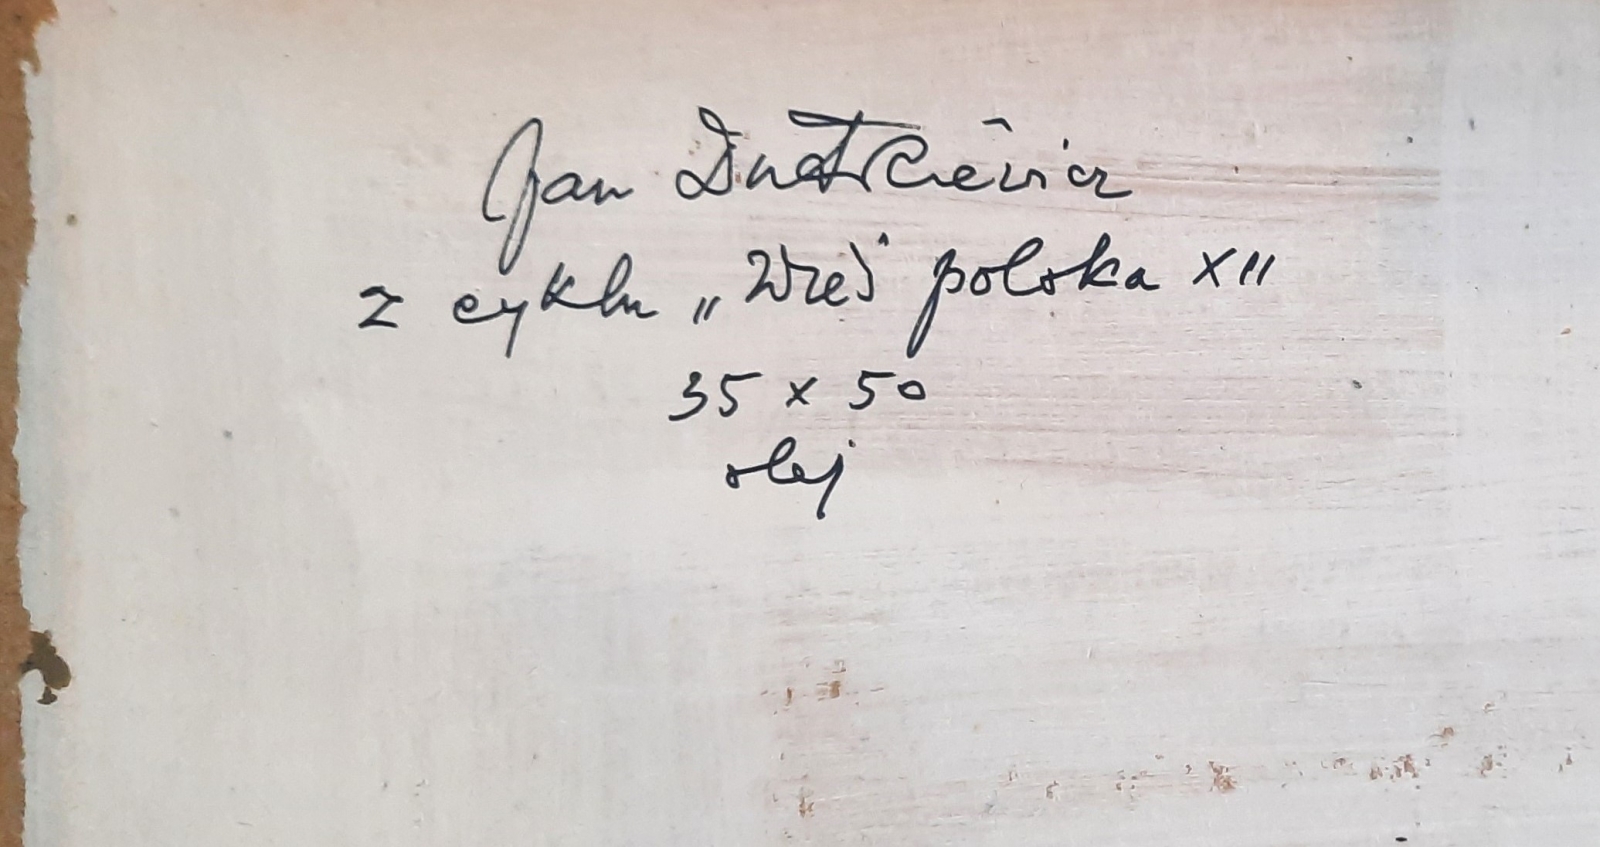 Jan Dutkiewicz
z cyklu „Wieś polska XII
35 x 50
olej